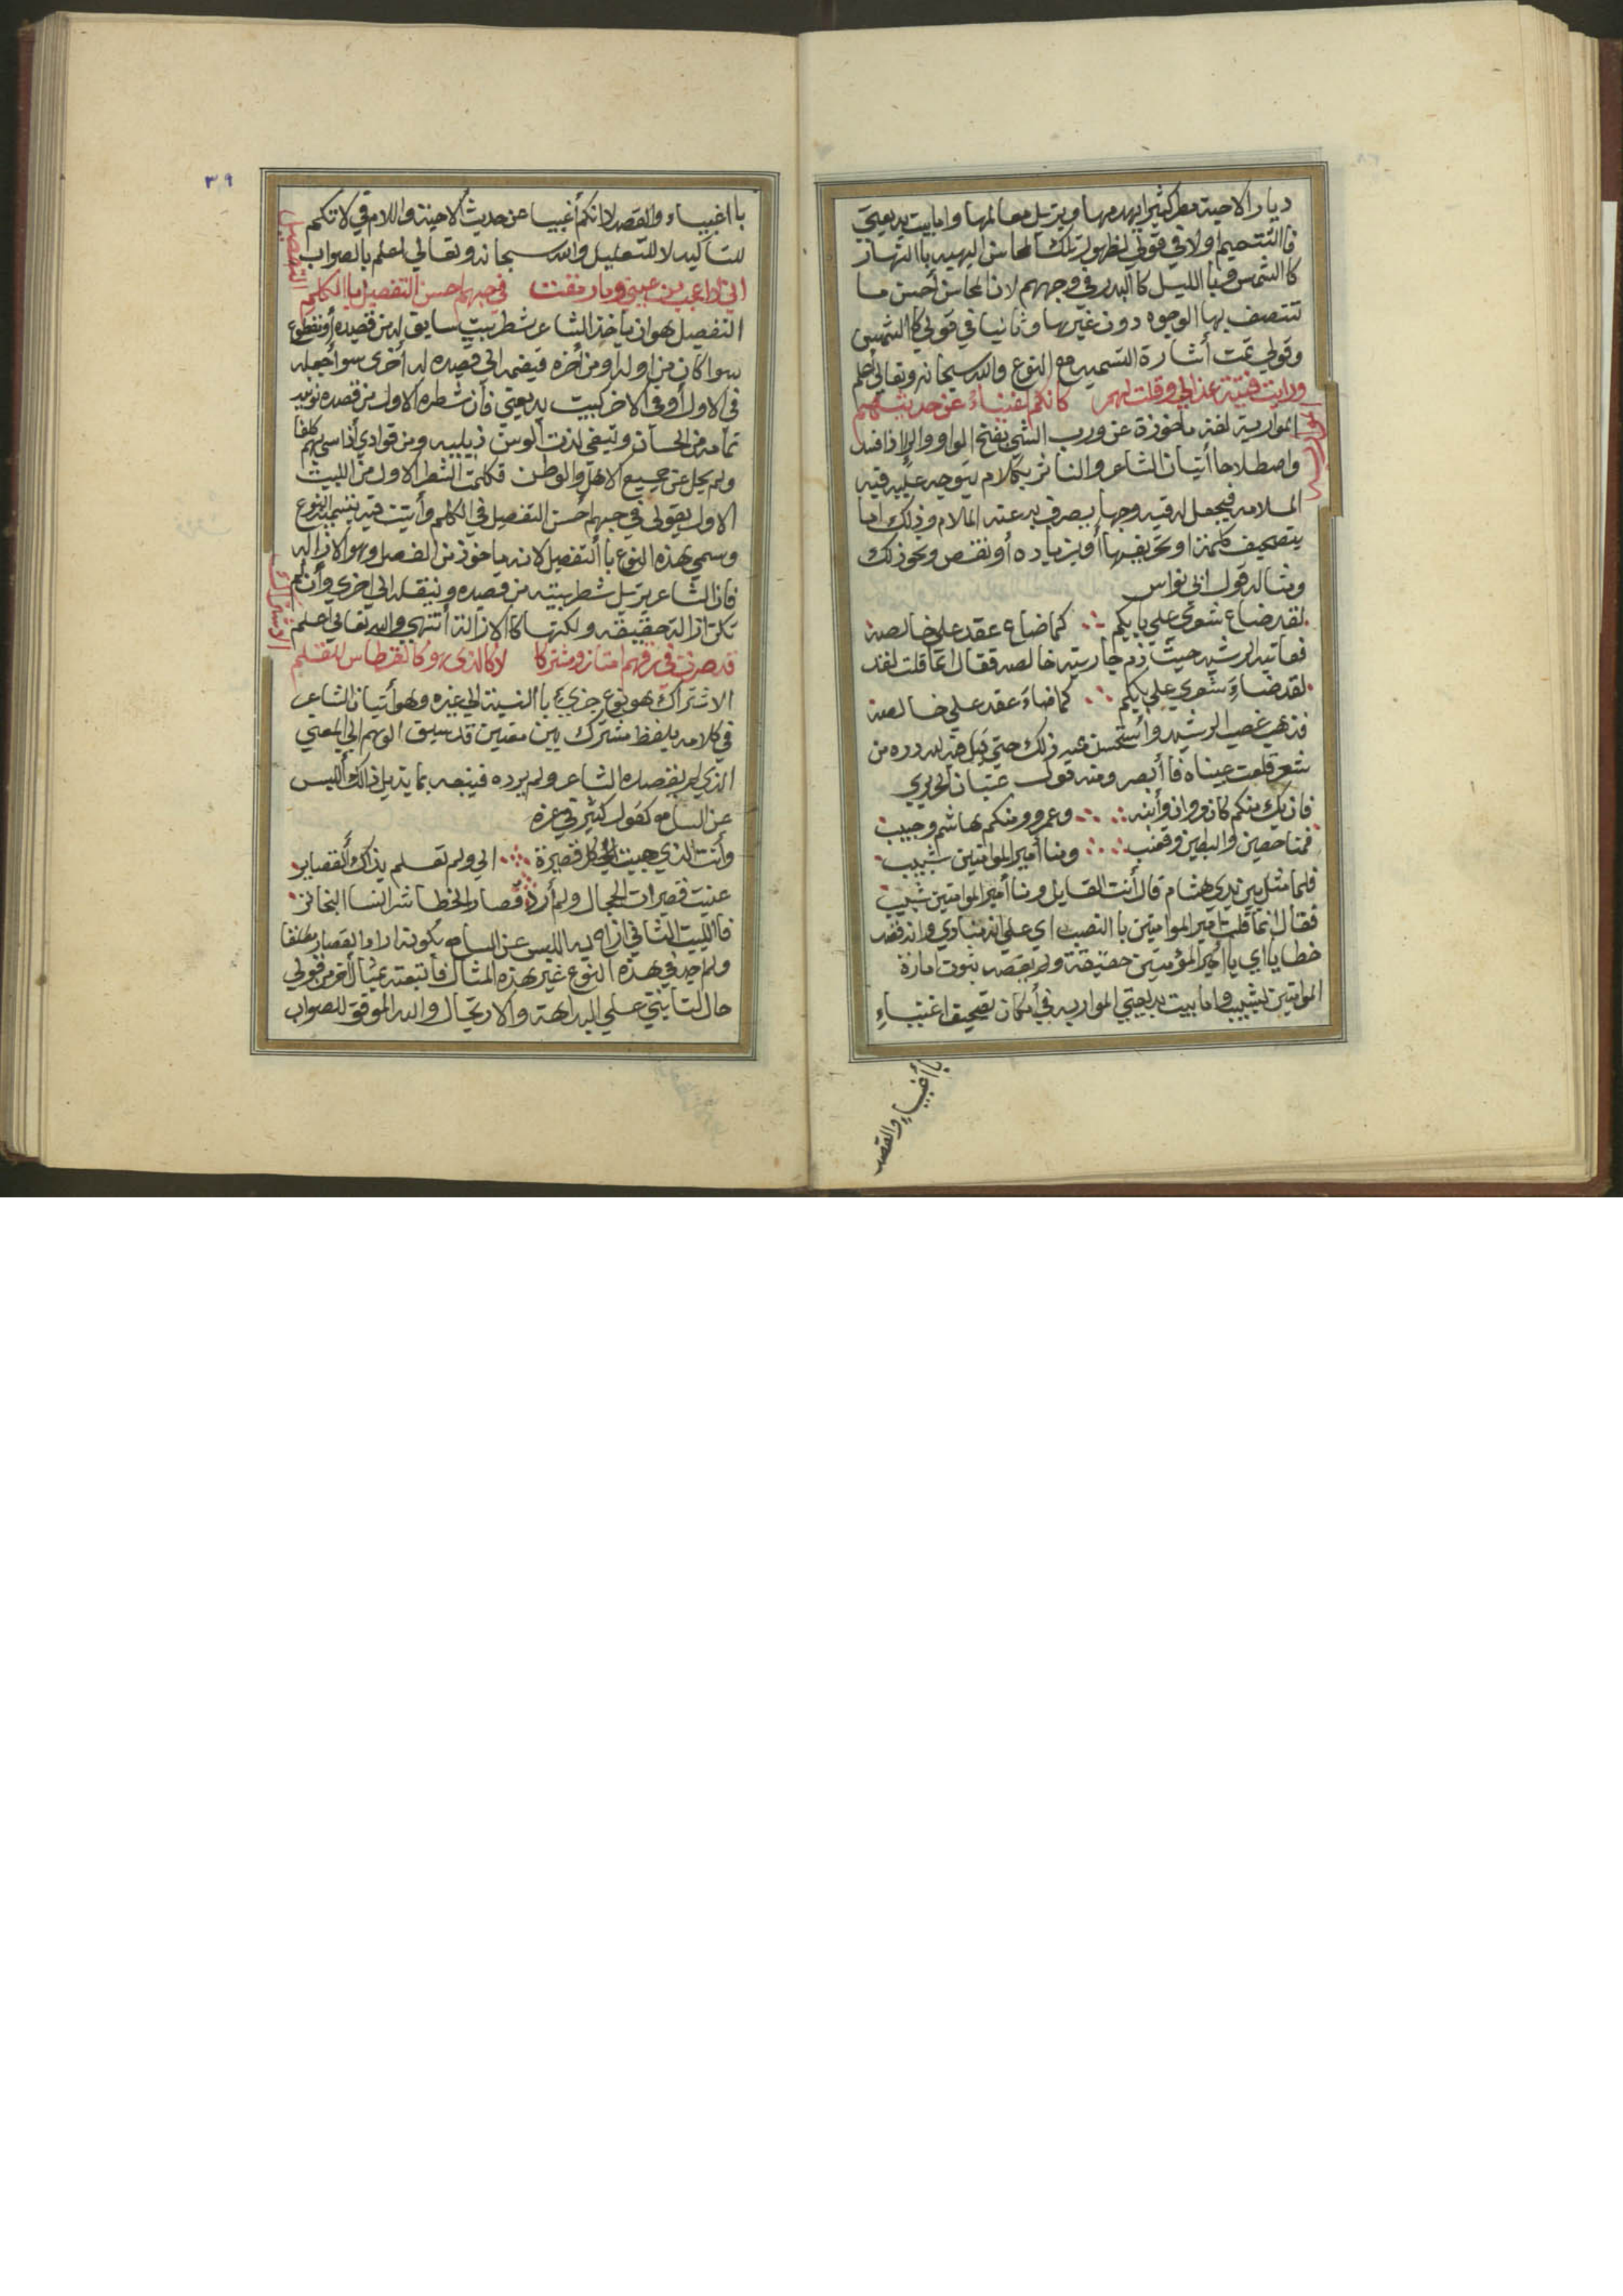 ديار الاحبة مطر كثيرا يهدمها ويزيل معالمها واما بيت بديعيتي
فاالتتميم اولا في قولي لظهور تلك المحاسن البهيه باالنهار
كاالشمس وباالليل كاالبدر في وجههم لان المحاسن أحسن ما
تتصف بها الوجوه دون غيرها وثانيا في قولي كاالشمس
وقولي تمت أشارة التسميه مع النوع والله سبحانه وتعالي أعلم
ورايت فتية عذالي وقلت لهم كانكم اغنياء عن حديثهم
المواربة
المواربة لغة مأخوذة عن ورب الشي بفتح الواو والرا اذا فسد
واصطلاحا أتيان الشاعر والناثر بكلام يتوجه عليه فيه
الملامه فيجعل له فيه وجها يصرف به عنه الملام وذلك اما
بتصحيف كلمة او تحريفها أو بزياده أو نقص ونحو ذلك
ومثاله قول ابي نواس
لقد ضاع شعري علي بابكم كما ضاع عقد علي خالصة
فعاتبه الرشيد حيث ذم جاريته خالصه فقال انما قلت لقد
لقد ضاء شعري علي بابكم كما ضاء عقد علي خالصة
فذهب غضب الرشيد وأستحسن منه ذلك حتي قيل هذا لله دره من
شعر قلعت عيناه فأبصر ومنه قول عتبان الحروري
فان يك منكم كان مروان وأبنه وعمرو ومنكم هاشم وحبيب
فمنا حصين والبطين وقعنب ومنا أمير الموامنين شبيب
فلما مثل بين يدي هشام قال أنت القايل ومنا أمير الموامنين شبيب
فقال انما قلت امير الموامنين باالنصب اي علي انه منادي وانه قصد
خطابا اي يا أمير المؤمنين حقيقة ولم يقصد ثبوت امارة
الموامنين لشبيب واما بيت بديعيتي المواربه في أمكان تصحيف اغنياء
باأغبياء والقصد
٣٩
باأغبياء والقصد لانكم أغبيا عن حديث الاحبة واللام في لانكم
للتأكيد لا للتعليل والله سبحانه وتعالي اعلم بالصواب
التفصيل
في حبهم احسن التفصيل باالكلم
التفصيل هو ان يأخذ الشاعر شطر بيت سابق له من قصيده أو مقطوع
سوا كان من اوله او من أخره فيضمه الي قصيده له أخرى سوا جعله
في الاول أو في الاخر كبيت بديعيتي فأن شطره الاول من قصيده
ولم يحل عن جميع الاهل والوطن فكلمت الشطر الاول من البيت
الاول بقولي في حبهم احسن التفصيل في الكلم وأتيت فيه بتسمية النوع
وسمي هذه النوع باالتفصيل لانه ماخوذ من الفصل وهو الازاله
فان الشاعر يزيل شطر بيته من قصيده وينقله الي اخري وأن لم
تكن ازالة حقيقه ولكنها كاالازالة أنتهي والله تعالي اعلم
الاشتراك
الاشتراك هو نوع جزي باالنسبة الي غيره وهو أتيان الشاعر
في كلامه بلفظ مشترك بين معنين قد سبق الوهم الي المعني
الذي لم يقصده الشاعر ولم يرده فيتبعه بما يزيل ذلك أللبس
عن السامع كقول كثير في عزه
وأنت الذي حببت كل قصيرة الي ولم تعلم بذاك ألقصاير
عنيت قصيرات الحجال ولم أرد قصار الخطا شر النسا البخاتر
فاالبيت الثاني ازال به اللبس عن السامع بكونه اراد القصار مطلقا
ولم اجد في هذه النوع غير هذه المثال فأتبعته بمثال أخر من قولي
حال كتابتي علي البداهة والارتجال والله الموفق للصواب